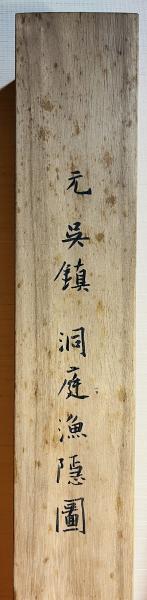 元吳鎮 洞庭漁隱圖